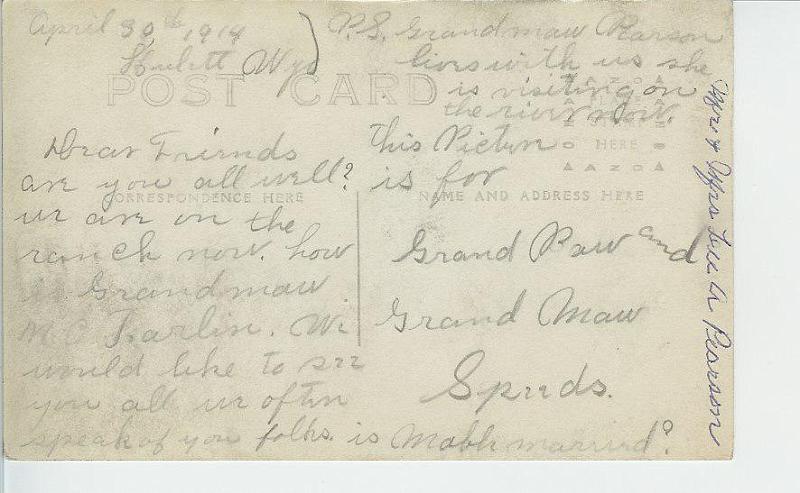 April 30th, 1914
Hulett Wyo
P.S. Grandmaw Pearson
lives with us she
is visiting on
the river now.
POST CARD
AZO
PLACE
HERE
AZO
CORRESPONDENCE HERE
NAME AND ADDRESS HERE
Dear Friends
are you all well?
we are on the
ranch now. how
is Grandmaw
Mc Farlin. We
would like to see
you all we often
speak of you folks. is Mable married?
this Picture
is for
Grand Paw and
Grand Maw
Speeds.
Mr & Mrs Lee A Pearson